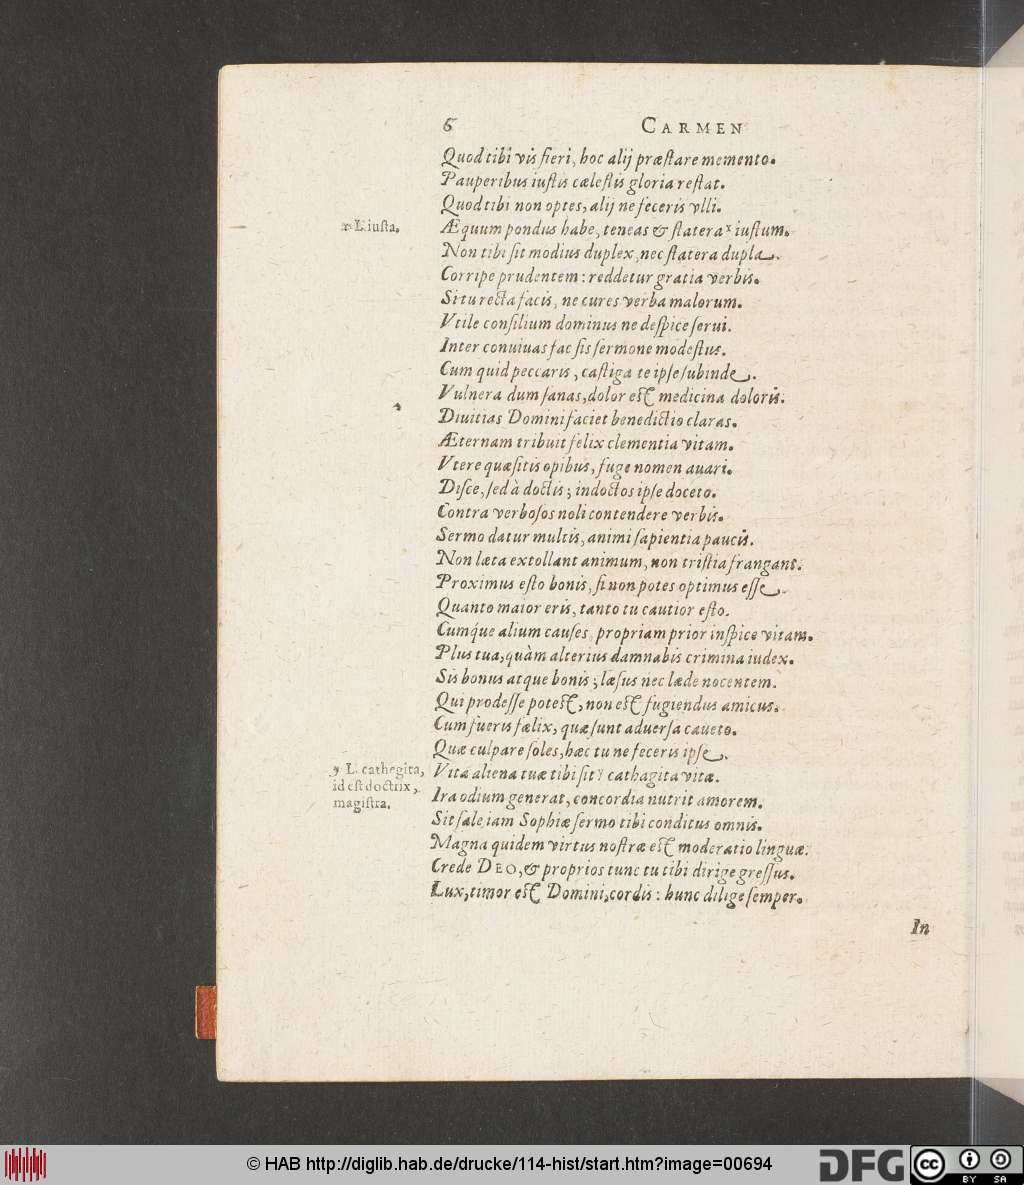 6 CARMEN
Quod tibi vis fieri, hoc alij præstare memento.
Pauperibus iustis cælestis gloria restat.
Quod tibi non optes, alij ne feceris vlli.
x L. iusta.
Æquum pondus habe, teneas & statera x iustum.
Non tibi sit modius duplex, nec statera dupla.
Corripe prudentem: reddetur gratia verbis.
Si tu recta facis, ne cures verba malorum.
Vtile consilium dominus ne despice serui.
Inter conuiuas fac sis sermone modestus.
Cum quid peccaris, castiga te ipse subinde.
Vulnera dum sanas, dolor est medicina doloris.
Diuitias Domini faciet benedictio claras.
Æternam tribuit felix clementia vitam.
Vtere quæsitis opibus, fuge nomen auari.
Disce, sed à doctis; indoctos ipse doceto.
Contra verbosos noli contendere verbis.
Sermo datur multis, animi sapientia paucis.
Non læta extollant animum, non tristia frangant.
Proximus esto bonis, si non potes optimus esse.
Quanto maior eris, tanto tu cautior esto.
Cumq́ue alium causes, propriam prior inspice vitam.
Plus tua, quàm alterius damnabis crimina iudex.
Sis bonus atque bonis; læsus nec læde nocentem.
Qui prodesse potest, non est fugiendus amicus.
Cum fueris fælix, quæ sunt aduersa caueto.
Quæ culpare soles, hæc tu ne feceris ipse.
y L. cathegita,
id est doctrix,
magistra.
Vita aliena tuæ tibi sit y cathagita vitæ.
Ira odium generat, concordia nutrit amorem.
Sit sale iam Sophiæ sermo tibi conditus omnis.
Magna quidem virtus nostræ est moderatio linguæ.
Crede DEO, & proprios tunc tu tibi dirige gressus.
Lux, timor est Domini, cordis: hunc dilige semper.
In
© HAB http://diglib.hab.de/drucke/114-hist/start.htm?image=00694
DFG
cc BY SA